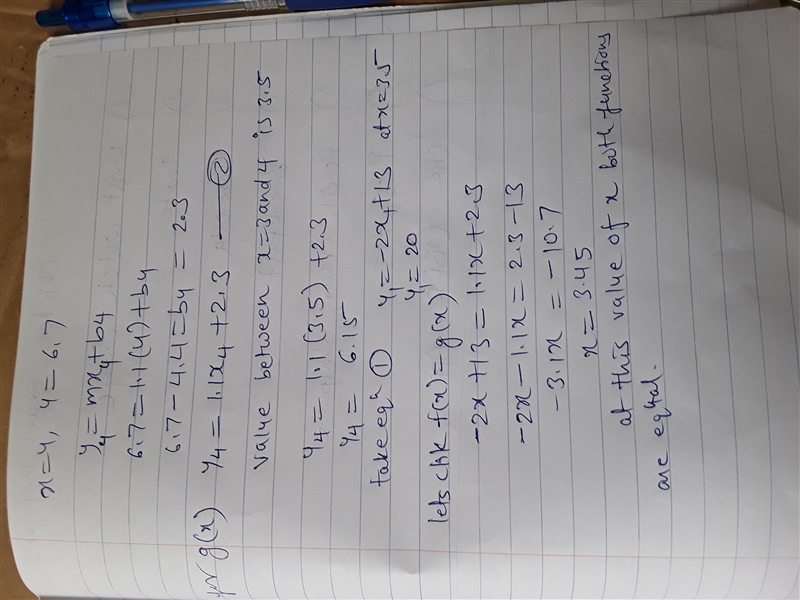 x=4, y=6.7
y₄=mx₄+b₄
6.7=1.1(4)+b₄
6.7-4.4=b₄ = 2.3
for g(x) y₄=1.1x₄+2.3 —②
value between x=3 and 4 is 3.5
y₄= 1.1(3.5) +2.3
y₄= 6.15
take eqⁿ ① y₁=-2x₁+13 at x=3.5
y₁= 20
lets chk f(x)=g(x)
-2x+13=1.1x+2.3
-2x-1.1x=2.3-13
-3.1x = -10.7
x=3.45
at this value of x both functions
are equal.